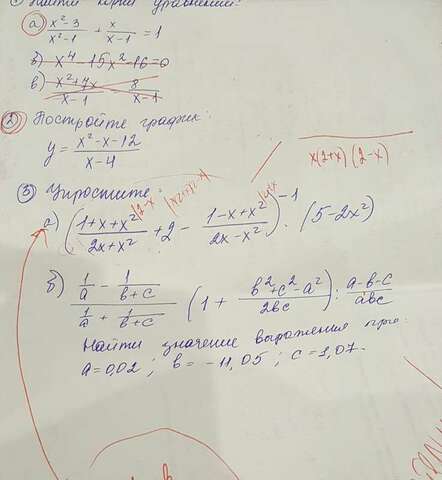 ① Найти корни уравнений:
а) (x²-3)/(x²-1) + x/(x-1) = 1
б) x⁴-15x²-16=0
в) (x²+4x)/(x-1) 8/(x-1)
② Постройте график:
y = (x²-x-12)/(x-4)
x(2+x)(2-x)
③ Упростите:
а) ((1+x+x²)/(2x+x²) + 2 - (1-x+x²)/(2x-x²))⁻¹ · (5-2x²)
б) (1/a - 1/(b+c))/(1/a + 1/(b+c)) (1 + (b²+c²-a²)/2bc) : (a-b-c)/abc
Найти значение выражения при:
a=0,02; b=-11,05; c=1,07.